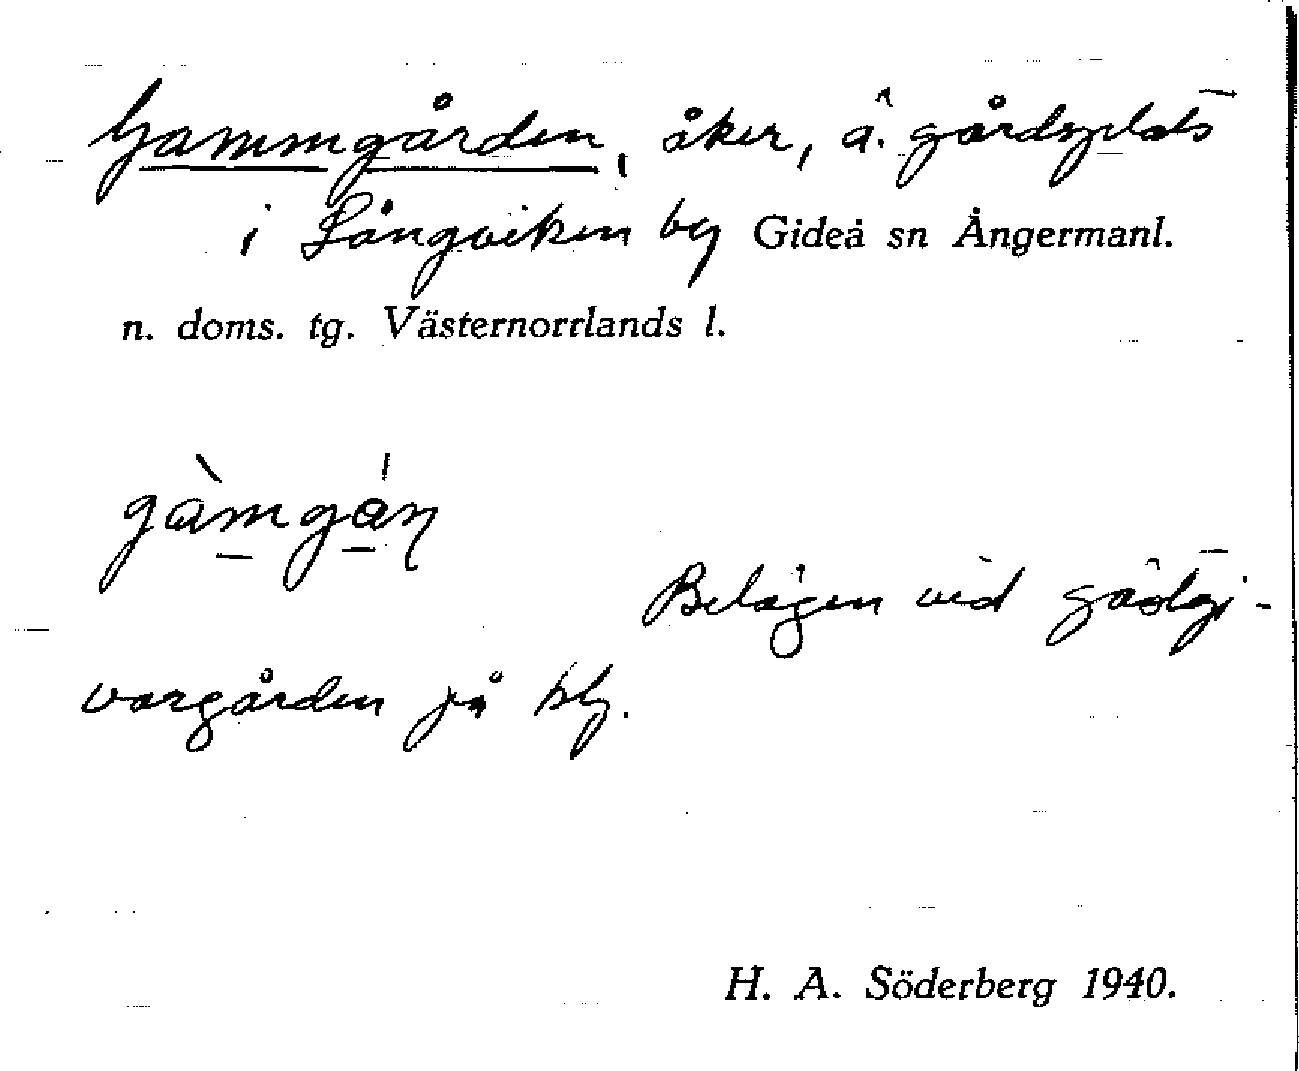 Gammgården, åker, ä. gårdsplats
i Långviken by Gideå sn Ångermanl.
n. doms. tg. Västernorrlands l.
gàmgán
Belägen vid gästgi-
vargården på by.
H. A. Söderberg 1940.